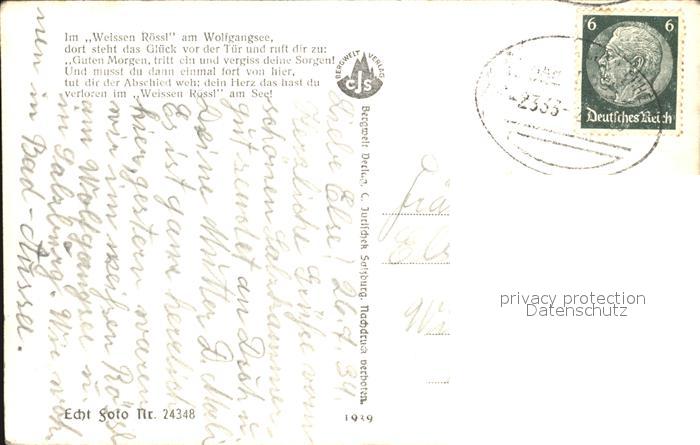 Im „Weissen Rössl" am Wolfgangsee,
dort steht das Glück vor der Tür und ruft dir zu:
„Guten Morgen, tritt ein und vergiss deine Sorgen!
Und musst du dann einmal fort von hier,
tut dir der Abschied weh; dein Herz das hast du
verloren im „Weissen Rössl" am See!
BERGWELT VERLAG
cJs
6 6
Deutsches Reich
2335
Bergwelt Verlag, C. Jurischek Salzburg. Nachdruck verboten.
Liebe Else! 26.7.39.
Herzliche Grüße vom
schönen Salzkammer-
gut sendet an Dich u
Deine Mutter D. Mali
Es ist ganz herrlich
hier, gestern waren
wir im weißen Rössl
am Wolfgangsee u
in Salzburg. Wir
nen in Bad-Aussee.
Frä
privacy protection
Datenschutz
Echt Foto Nr. 24348
1939